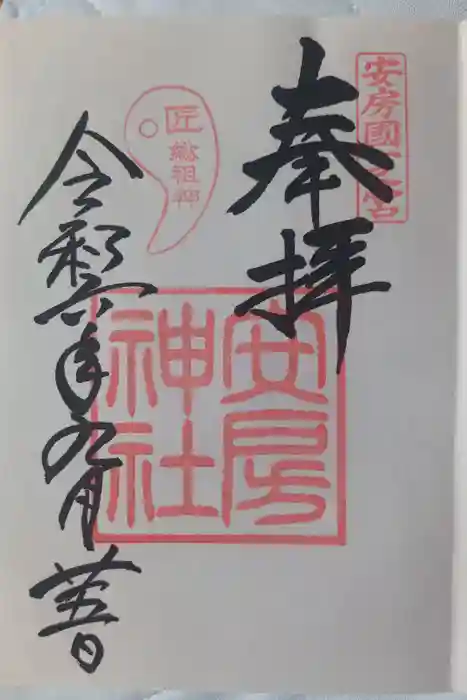 安房國一之宮
奉拝
安房神社
匠
総祖神
令和六年九月廿五日